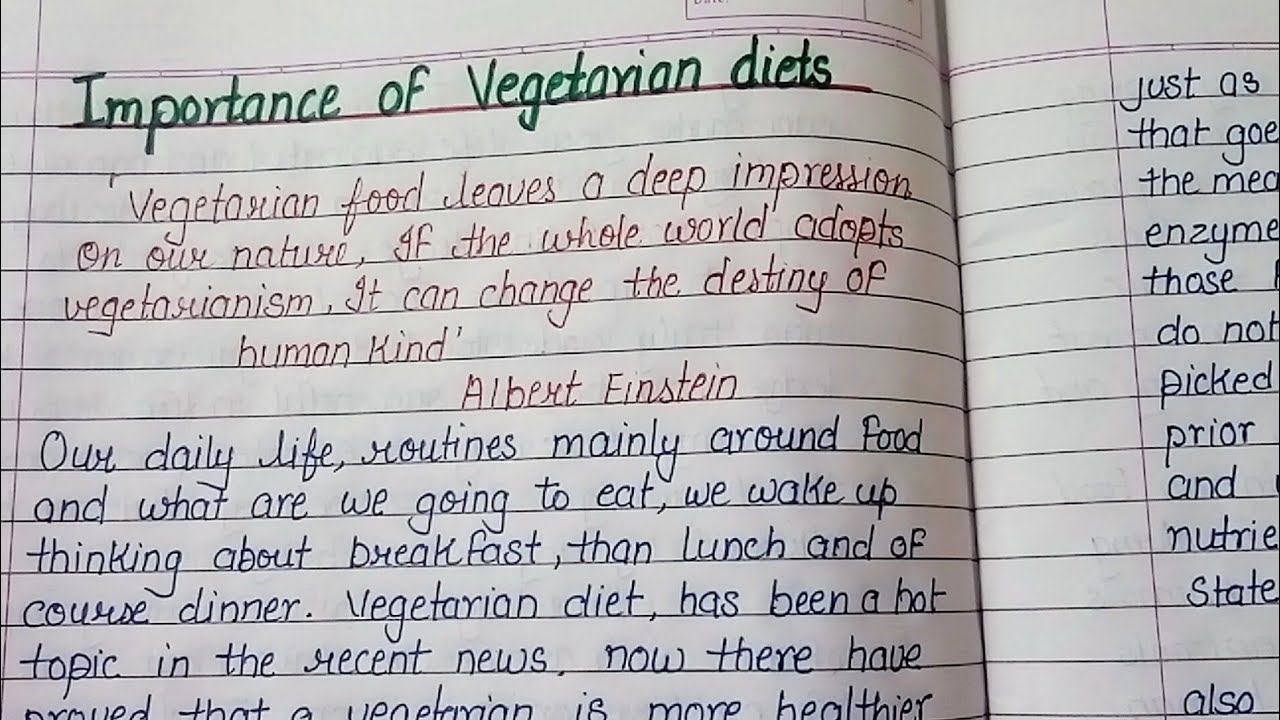 Importance of Vegetarian diets
'Vegetarian food leaves a deep impression
on our nature, If the whole world adopts
vegetarianism, It can change the destiny of
human kind'
Albert Einstein
Our daily life, routines mainly around food
and what are we going to eat, we wake up
thinking about breakfast, than lunch and of
course dinner. Vegetarian diet, has been a hot
topic in the recent news, now there have
proved that a vegetarian is more healthier
just as
that goe
the mea
enzyme
those
do not
picked
prior
and
nutrie
State
also